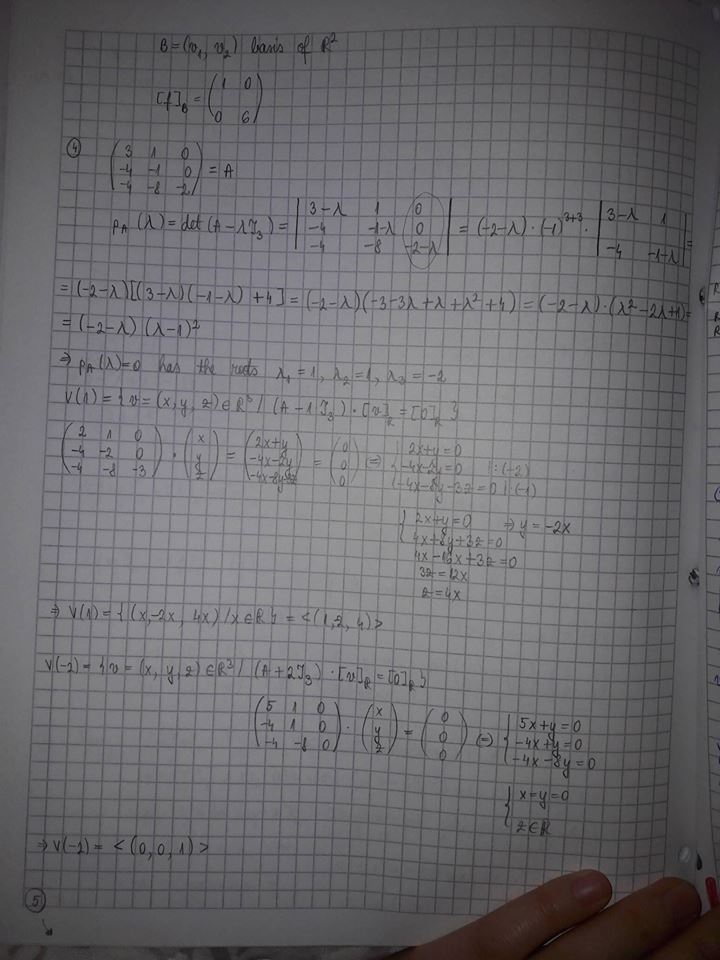 B = (v₁, v₂) basis of ℝ²
[f]_B = ( 1 0 ; 0 6 )
④ ( 3 1 0 ; -4 -1 0 ; -4 -8 -2 ) = A
p_A(λ) = det(A - λI₃) = | 3-λ 1 0 ; -4 -1-λ 0 ; -4 -8 -2-λ | = (-2-λ)·(-1)^{3+3}· | 3-λ 1 ; -4 -1-λ | =
= (-2-λ)[(3-λ)(-1-λ) + 4] = (-2-λ)(-3-3λ+λ+λ²+4) = (-2-λ)·(λ²-2λ+1) =
= (-2-λ)(λ-1)²
⇒ p_A(λ)=0 has the roots λ₁=1, λ₂=1, λ₃=-2
V(1) = { v=(x,y,z)∈ℝ³ / (A-1I₃)·[v]_R = [0]_R }
( 2 1 0 ; -4 -2 0 ; -4 -8 -3 ) · ( x ; y ; z ) = ( 2x+y ; -4x-2y ; -4x-8y-3z ) = ( 0 ; 0 ; 0 ) (=) { 2x+y=0
-4x-2y=0 |:(-2)
-4x-8y-3z=0 |·(-1)
{ 2x+y=0 ⇒ y=-2x
4x+8y+3z=0
4x-16x+3z=0
3z=12x
z=4x
⇒ V(1) = { (x,-2x, 4x) /x∈ℝ } = <(1,2,4)>
V(-2) = { v=(x,y,z)∈ℝ³ / (A+2I₃)·[v]_R=[0]_R }
( 5 1 0 ; -4 1 0 ; -4 -8 0 ) · ( x ; y ; z ) = ( 0 ; 0 ; 0 ) (=) { 5x+y=0
-4x+y=0
-4x-8y=0
{ x=y=0
z∈ℝ
⇒ V(-2) = <(0,0,1)>
⑤